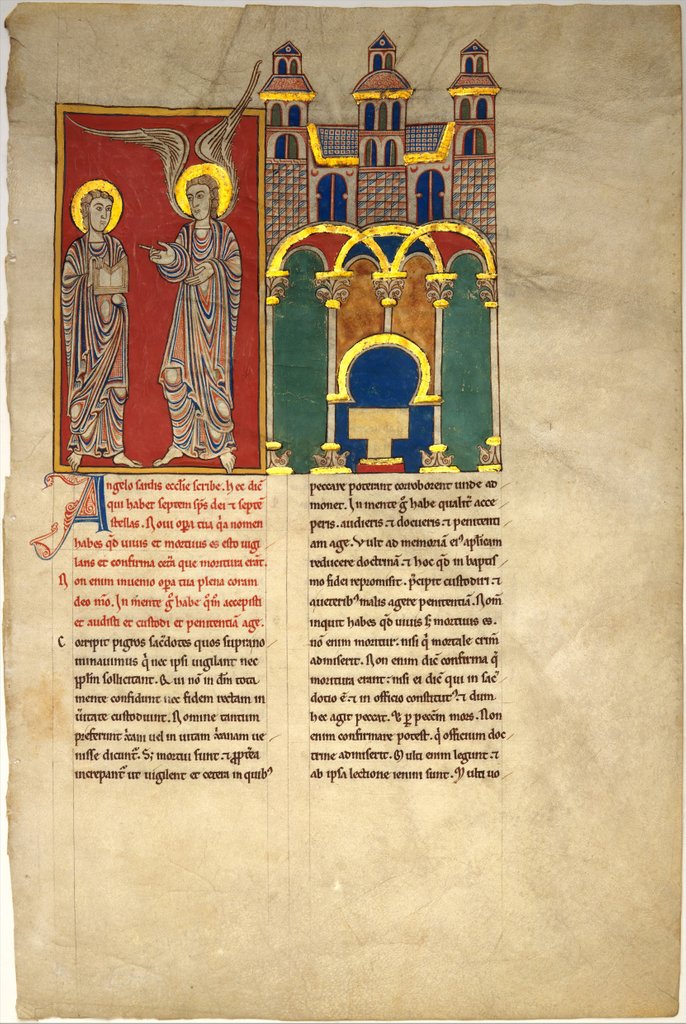 Angelo sardis ecclīe scribe. hec dic̄
qui habet septem sp̄s dei ⁊ septē
stellas. Noui op̄a tua q̄a nomen
habes qđ uiuis et mortuus es esto uigi
lans et confirma cet̄a que moritura erāt.
Non enim inuenio op̄a tua plena coram
deo m̄o. In mente ḡ habe q̄m accepisti
et audisti et custodi et penitentiā age.
Corripit pigros sac̄dotes quos suprano
minauimus q̄ nec ipsi uigilant nec
p̄plm̄ sollicitant. & ui nō in dn̄m tota
mente confidunt nec fidem rectam in
ūitate custodiunt. Nomine tantum
preferunt x̄am uel in uitam x̄anam ue
nisse dicunt̄. S; mortui sunt ⁊ p̄pt̄ea
increpant̄ ut uigilent et cetera in quib⁹
peccare poterant corroborent unde ad
monet. In mente ḡ habe qualit̄ acce
peris. audieris ⁊ docueris ⁊ penitenti
am age. Vult ad memoriā ei⁹ ap̄licam
reducere doctrinā ⁊ hoc qđ in baptis
mo fidei repromisit. p̄cipit custodiri ⁊
que ueterib⁹ malis agere penitentiā. Nom̄
inquit habes qđ uiuis s; mortuus es.
nō enim moritur. nisi q̄ mortale crim̄
admiserit. Non enim dic̄ confirma q̄
moritura erant. nisi ei dic̄ qui in sac̄
dotio ē ⁊ in officio constitut⁹ ⁊ dum
hec agit peccat. & p̱ pecc̄m mors. Non
enim confirmare potest. q̄ officium doc
trine admiserit. Multi enim legunt ⁊
ab ipsa lectione ieiuni sunt. Multi uo